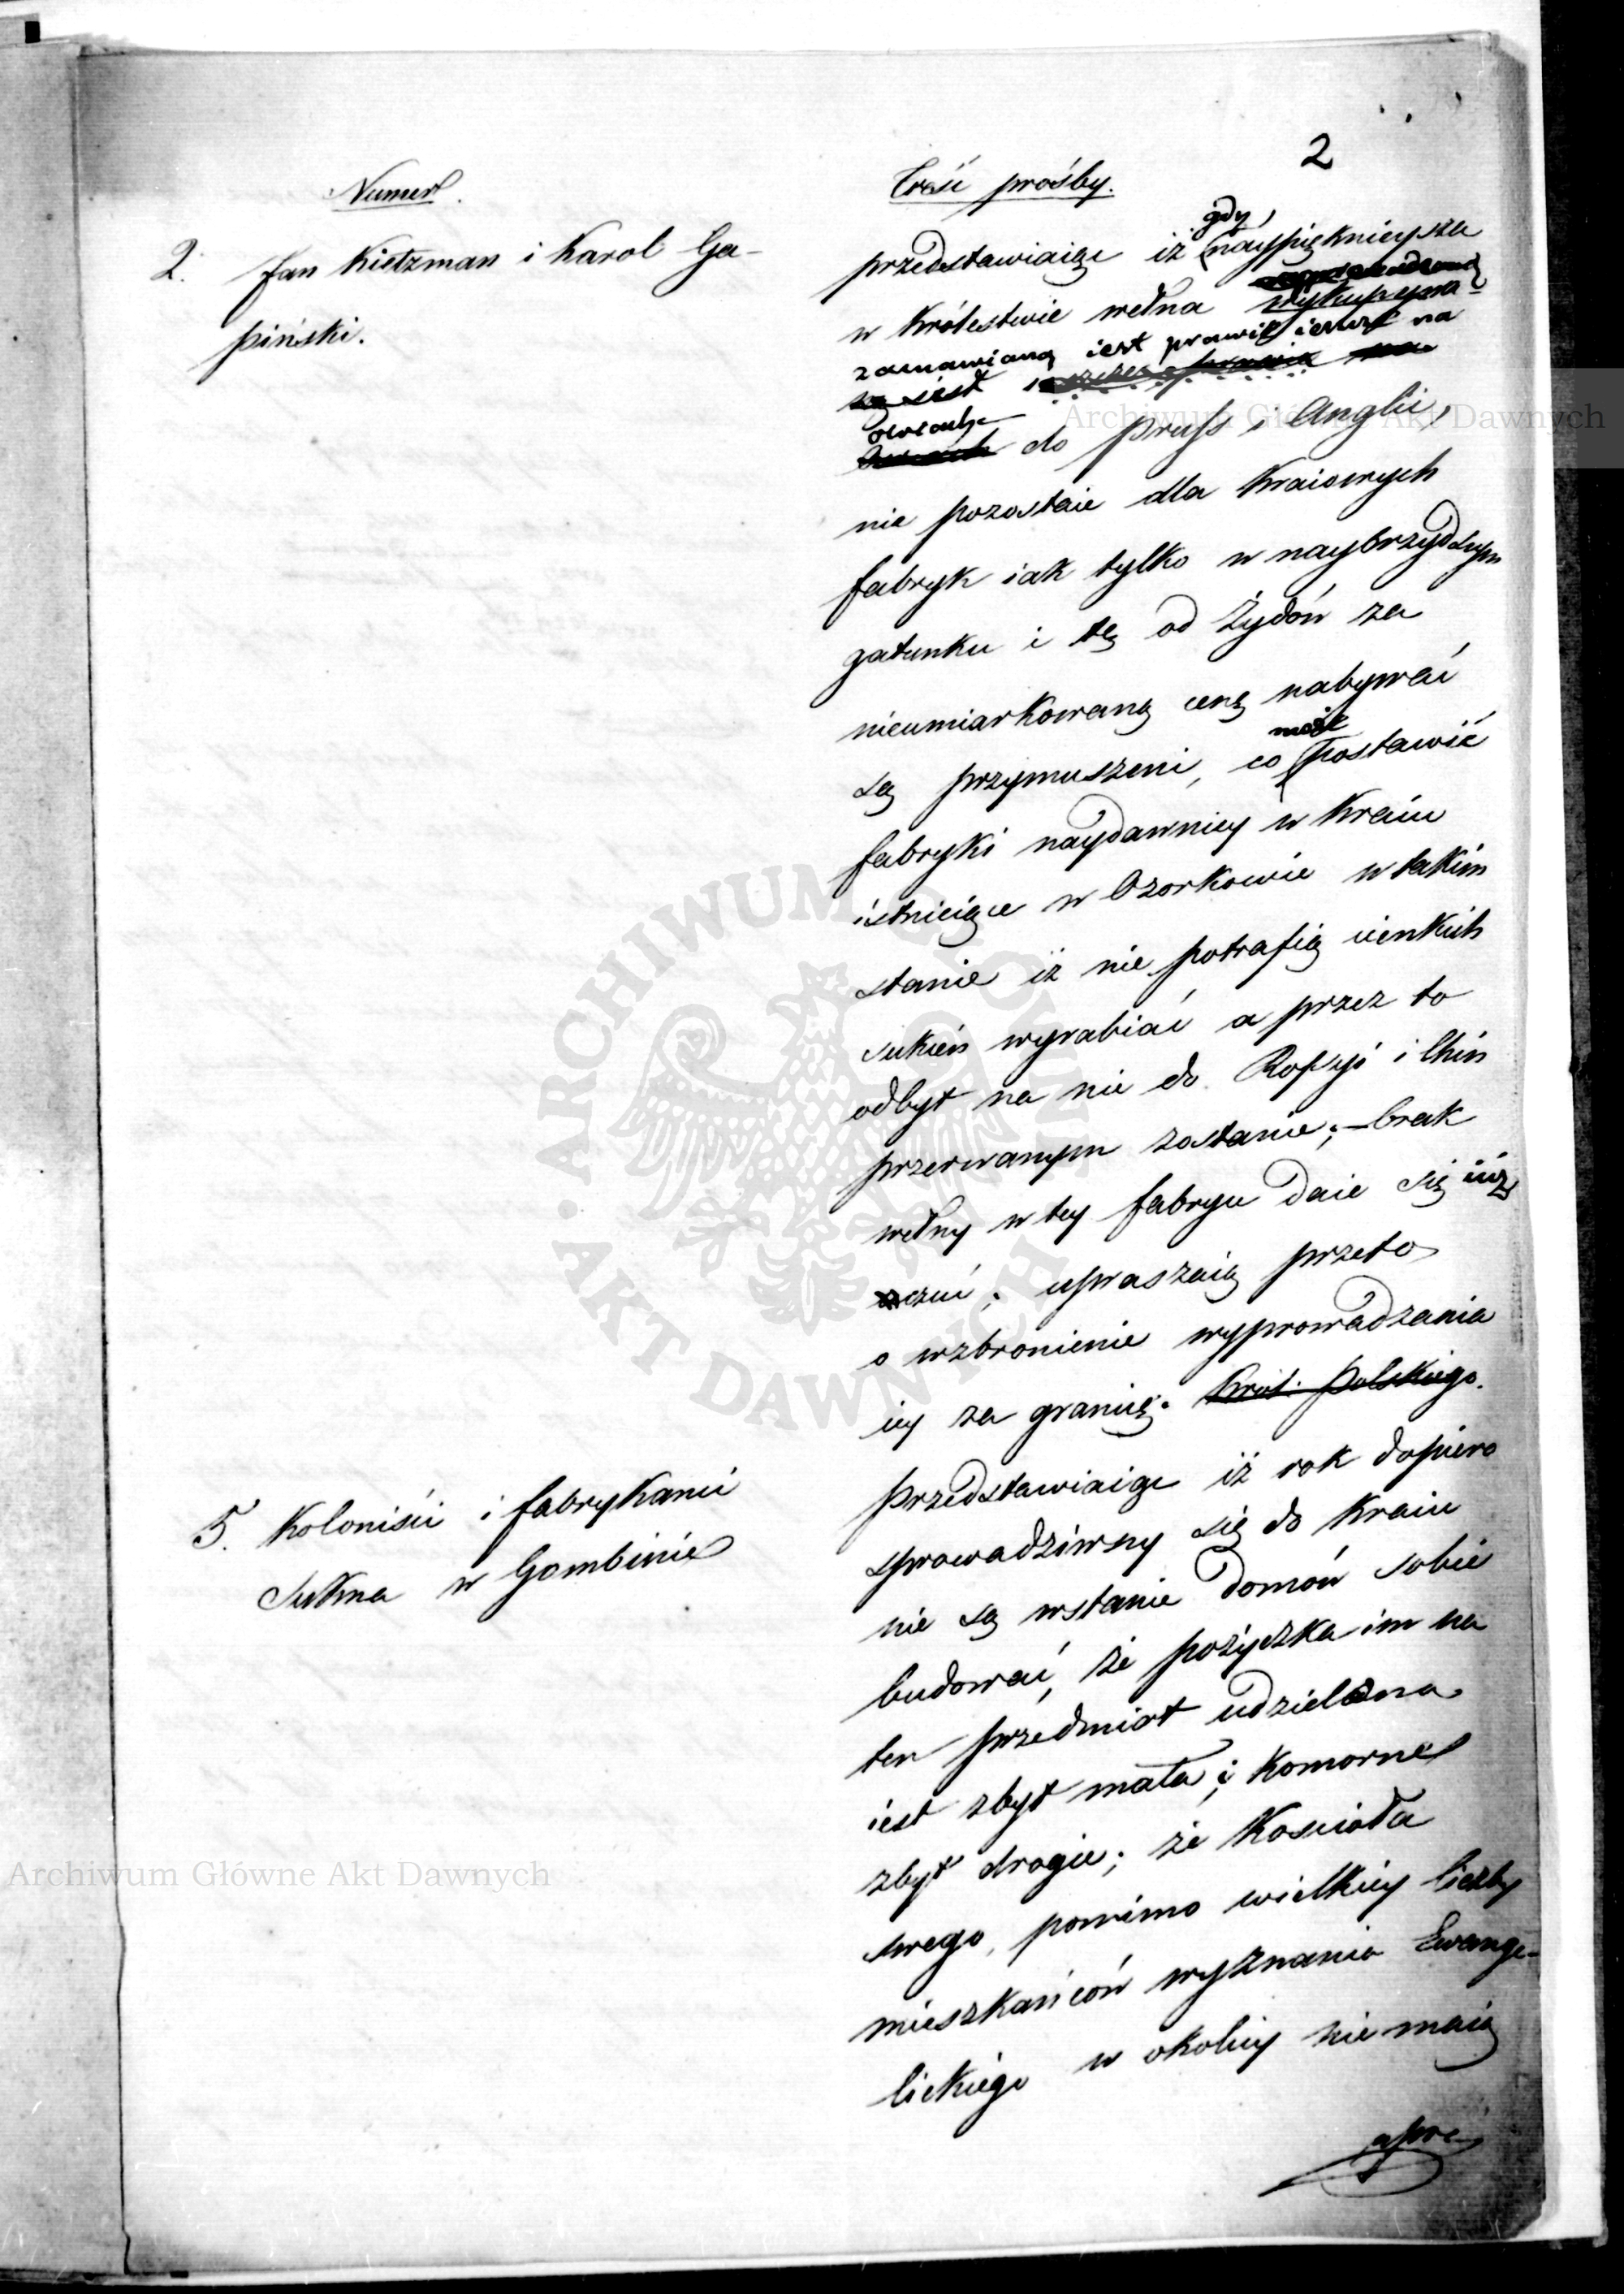 2
Numer.
Treść prośby.
2. Jan Kietzman i Karol Ga-
piński.
gdy,
przedstawiaiąc iż naypięknieysza
w Królestwie wełna wykupywa-
zamawianą iest prawie ieszcze na
są iest
owcach
do Pruss i Anglii,
nie pozostaie dla Kraiowych
fabryk iak tylko w naybrzydszym
gatunku i tę od Żydów za
nieumiarkowaną cenę nabywać
może
są przymuszeni, co postawić
fabryki naydawniey w Kraiu
istnieiące w Ozorkowie w takim
stanie iż nie potrafią cienkich
sukien wyrabiać a przez to
odbyt na nie do Rossyi i Chin
przerwanym zostanie; – brak
wełny w tey fabryce daie się iuż
czuć; upraszaią przeto
o wzbronienie wyprowadzania
iey za granicę. Król. Polskiego.
5. Koloniści i fabrykanci
Sukna w Gombinie
Przedstawiaiąc iż rok dopiero
sprowadziwszy się do Kraiu
nie są wstanie domów sobie
budować, że pożyczka im na
ten przedmiot udzielona
iest zbyt mała; i Komorne
zbyt drogie; że Kościoła
swego, pomimo wielkiey liczby
mieszkańców wyznania Ewange-
lickiego w okolicy nie maią
Archiwum Główne Akt Dawnych
Archiwum Główne Akt Dawnych
ARCHIWUM GŁÓWNE
AKT DAWNYCH